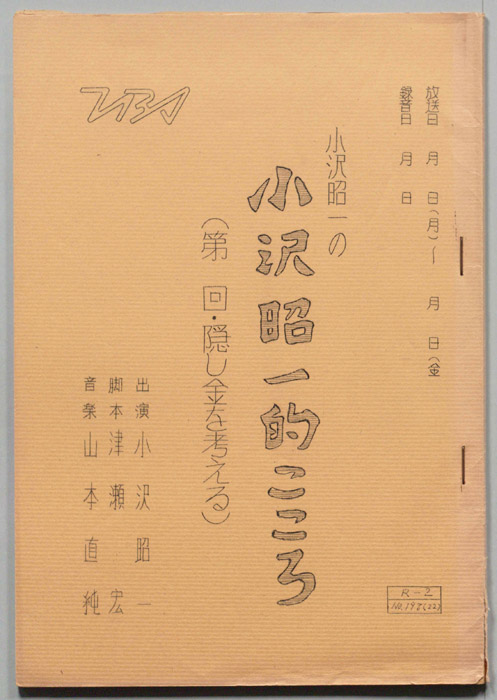 放送日 月 日(月)~ 月 日(金
録音日 月 日
小沢昭一の
小沢昭一的こころ
(第 回・隠し金を考える)
出演 小沢昭一
脚本 津瀬宏
音楽 山本直純
TBS
R-2